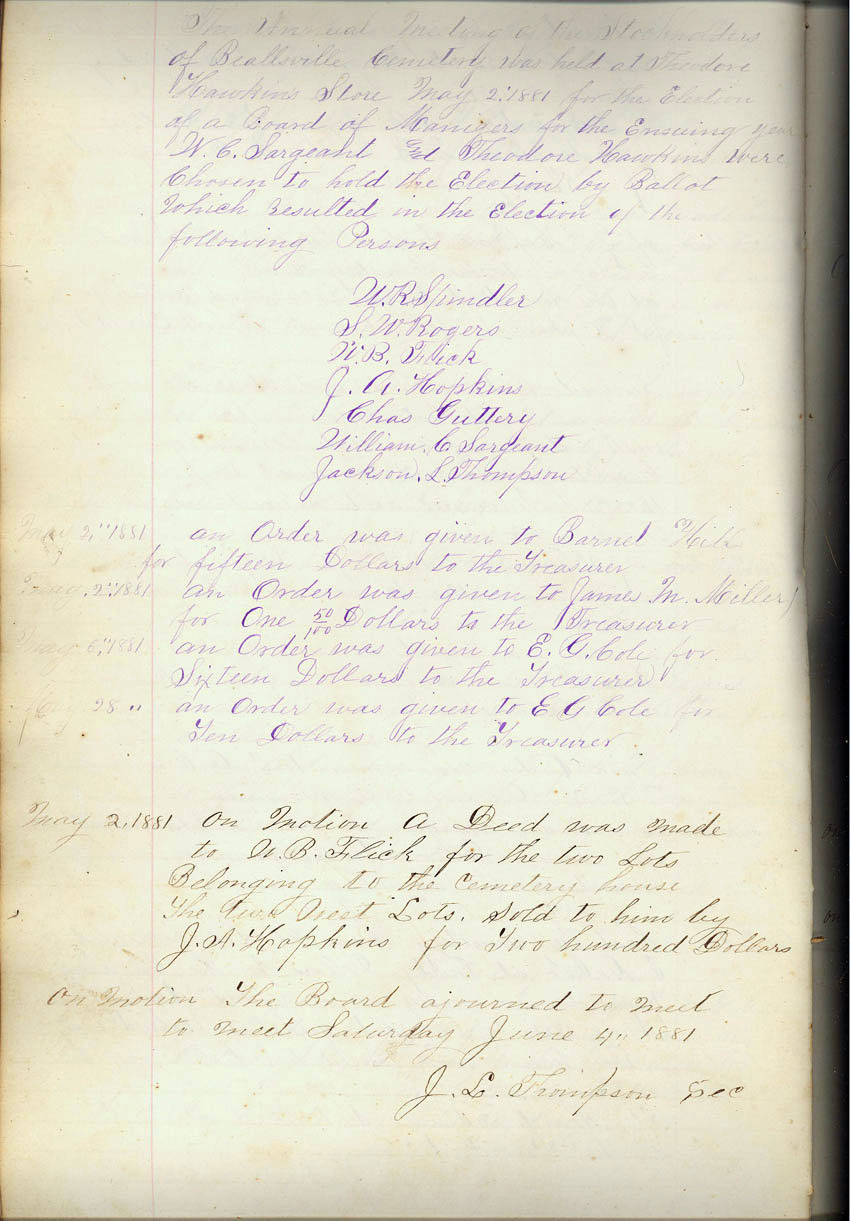 The Annual Meeting of the Stockholders
of Beallsville Cemetery was held at Theodore
Hawkins Store May 2,, 1881 for the Election
of a Board of Manigers for the Ensuing year
W. C. Sargeant and Theodore Hawkins were
Chosen to hold the Election by Ballot
Which resulted in the Election of the
following Persons
W. R. Spindler
S. W. Rogers
W. B. Flick
J. A. Hopkins
Chas Guttery
William. C Sargeant
Jackson. L. Thompson
May 2,, 1881 an Order was given to Barnel Hill
for fifteen Dollars to the Treasurer
May. 2,, 1881 an Order was given to James M. Miller
for One 50/100 Dollars to the Treasurer
May 6,, 1881 an Order was given to E. G. Cole for
Sixteen Dollars to the Treasurer
May 28 ,, an Order was given to E G Cole for
Ten Dollars to the Treasurer.
May 2, 1881 On Motion A Deed was made
to W. B. Flick for the two Lots
Belonging to the Cemetery house
The West Lots. Sold to him by
J. A. Hopkins for Two hundred Dollars
On Motion The Board ajourned to meet
to meet Saturday June 4,, 1881
J. L. Thompson Sec